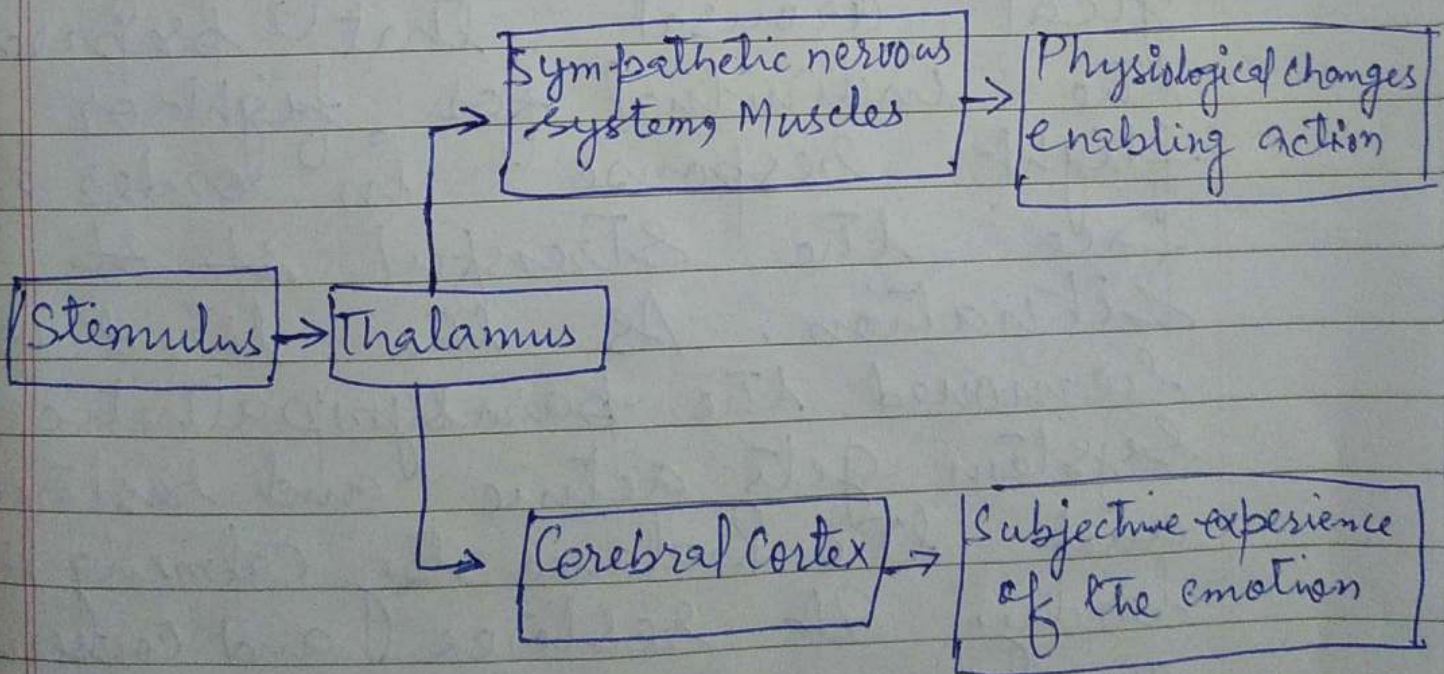 Sympathetic nervous
systems Muscles
Physiological changes
enabling action
Stemulus
Thalamus
Cerebral Cortex
Subjective experience
of the emotion